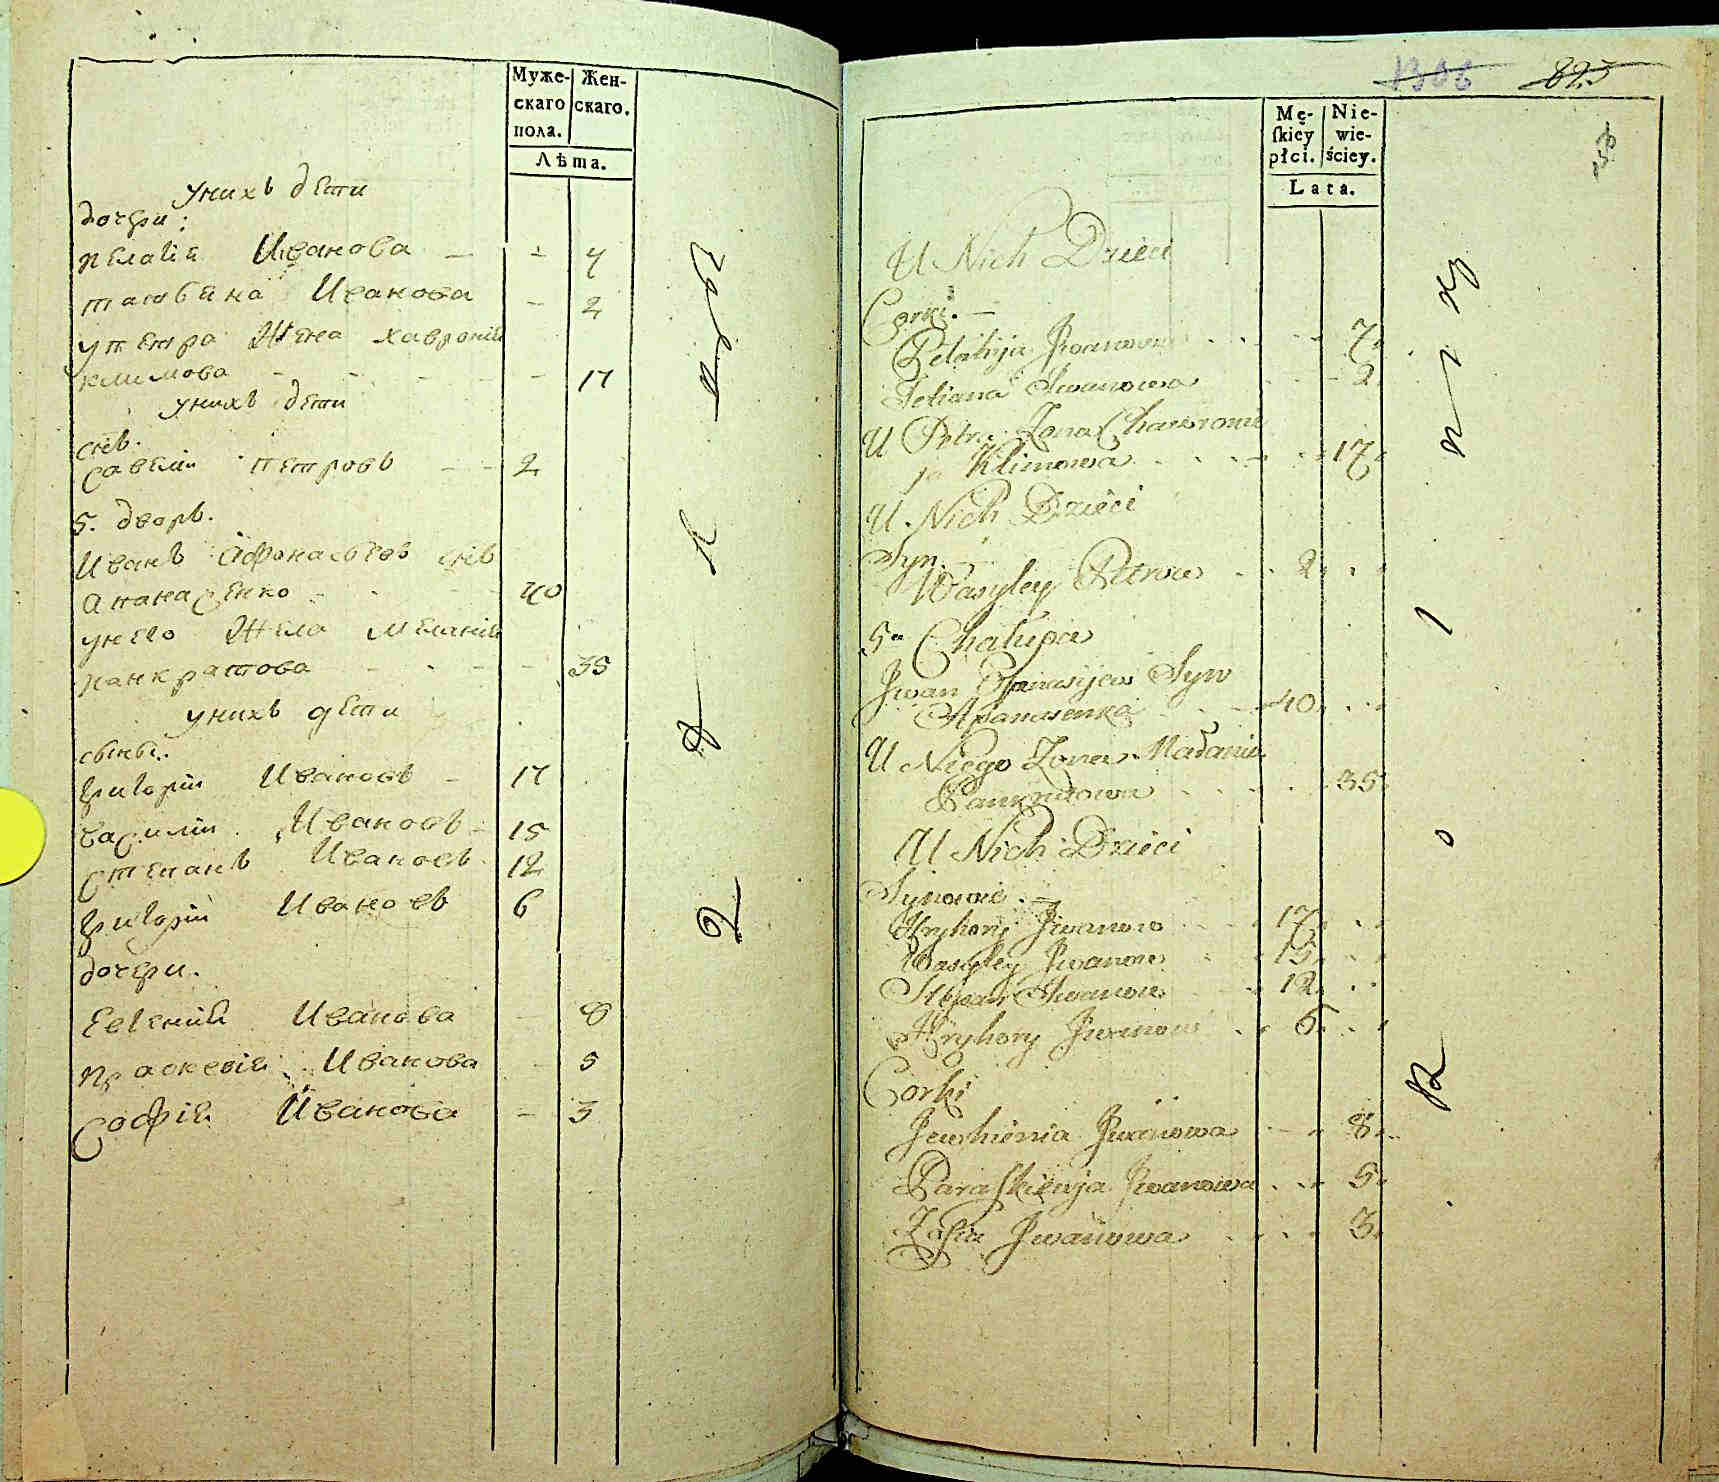 Муже-
скаго
пола.
Жен-
скаго.
Лѣта.
унихъ дети
дочери:
пелагія Иванова — - 7
татьяна Иванова - 2
упетра Жена хавронія
климова - 17
унихъ дети
снъ.
савелии петровъ - - 2
5. дворъ.
Иванъ афонасьевъ снъ
апанасенко - 40
унего Жена меланія
панкратова - 35
унихъ дети
сыны:
григорій Ивановъ - 17
василій Ивановъ - 15
степанъ Ивановъ 12
григорій Ивановъ 6
дочери.
Евгенія Иванова - 8
прасковія Иванова - 5
софія Иванова - 3
1306 825
Mę-
ſkiey
płci.
Nie-
wie-
ściey.
Lata.
U Nich Dzieci
Corki. —
Pelahija Jwanowa 7
Tetiana Jwanowa 2
U Petra Zona Chawroni
ja Klimowa 17
U Nich Dzieci
Syn.
Wasyley Petrow 2
5a Chałupa
Jwan Afanasijew Syn
Apanasenka 40
U Niego Zona Małania
Pankratowa 35
U Nich Dzieci
Synowie. —
Hryhory Jwanow 17
Wasyley Jwanow 15
Stepan Jwanow 12
Hryhory Jwanow 6
Corki
Jewhienia Jwanowa 8
Paraſkiewja Jwanowa 5
Zofia Jwanowa 3